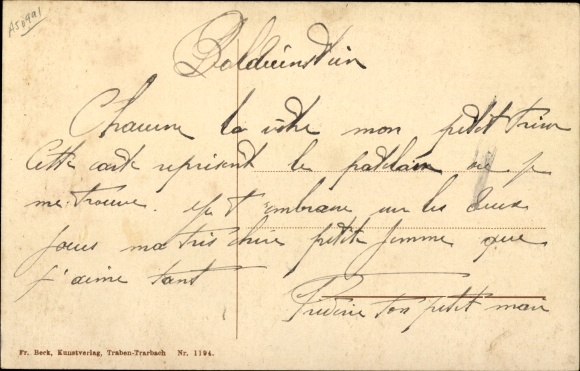 A50991
Balduinstein
Chacune la vôtre mon petit
Cette carte represent le patelain ou je
me trouve. je t embrasse sur les deux
joues ma tres chère petite femme que
j'aime tant
ton petit mari
Fr. Beck, Kunstverlag, Traben-Trarbach Nr. 1194.